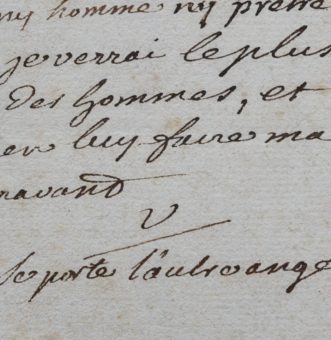 ny homme ny pretre
je verrai le plus
Des hommes, et
luy faire ma
ravand
V
se porte l'autre ange